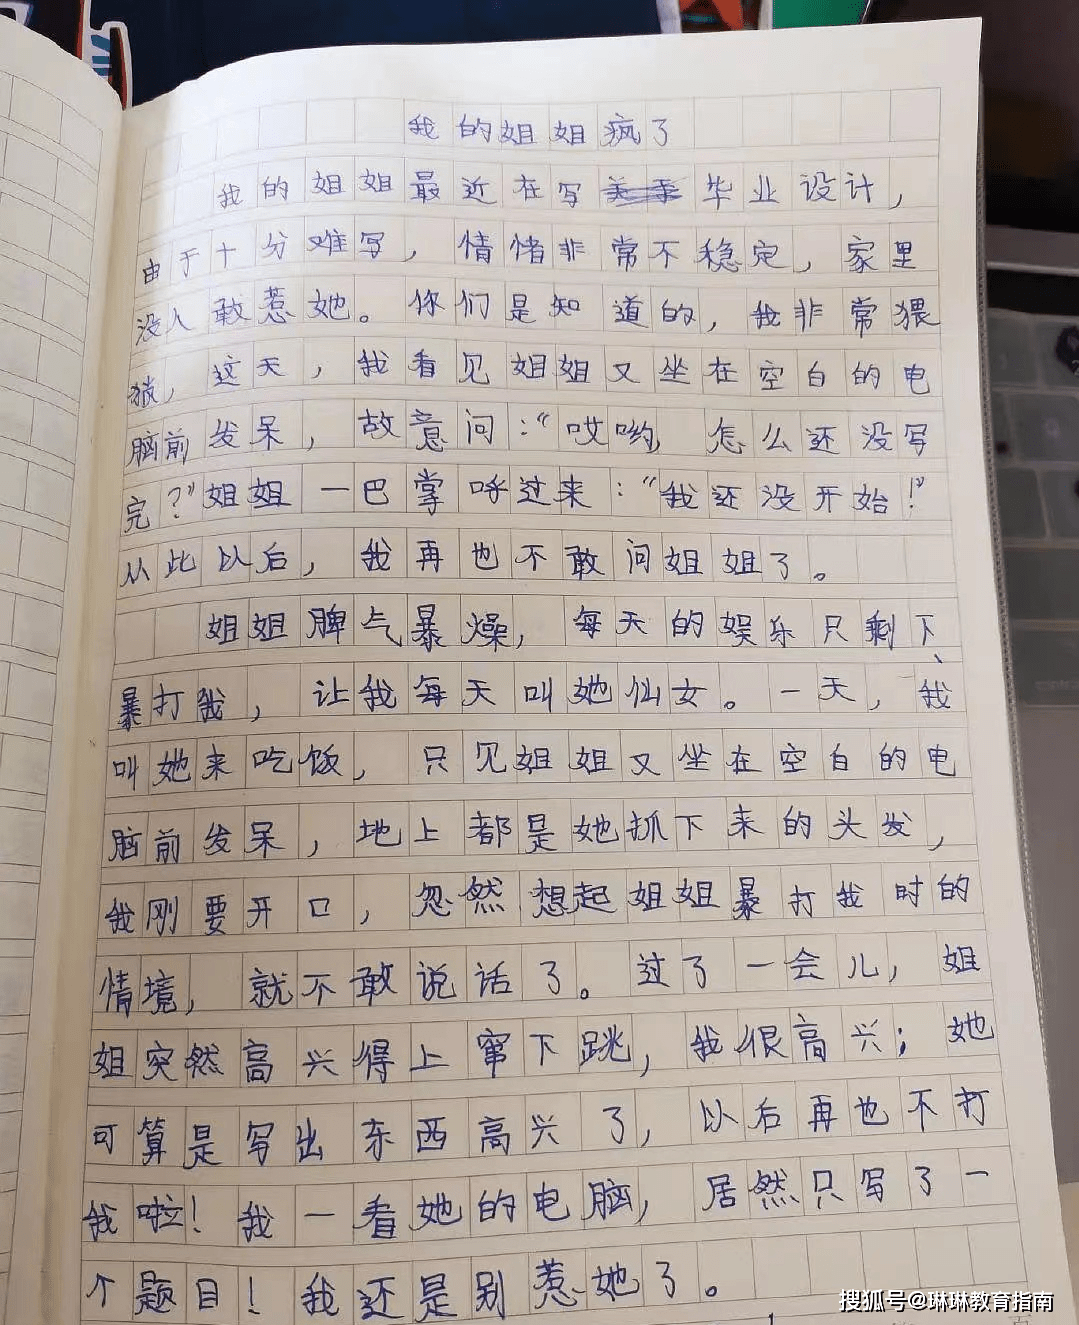 我的姐姐疯了
我的姐姐最近在写毕业设计，
由于十分难写，情绪非常不稳定，家里
没人敢惹她。你们是知道的，我非常猥
琐，这天，我看见姐姐又坐在空白的电
脑前发呆，故意问：“哎哟，怎么还没写
完？”姐姐一巴掌呼过来：“我还没开始！”
从此以后，我再也不敢问姐姐了。
姐姐脾气暴燥，每天的娱乐只剩下
暴打我，让我每天叫她仙女。一天，我
叫她来吃饭，只见姐姐又坐在空白的电
脑前发呆，地上都是她抓下来的头发，
我刚要开口，忽然想起姐姐暴打我时的
情境，就不敢说话了。过了一会儿，姐
姐突然高兴得上窜下跳，我很高兴；她
可算是写出东西高兴了，以后再也不打
我啦！我一看她的电脑，居然只写了一
个题目！我还是别惹她了。
搜狐号@琳琳教育指南